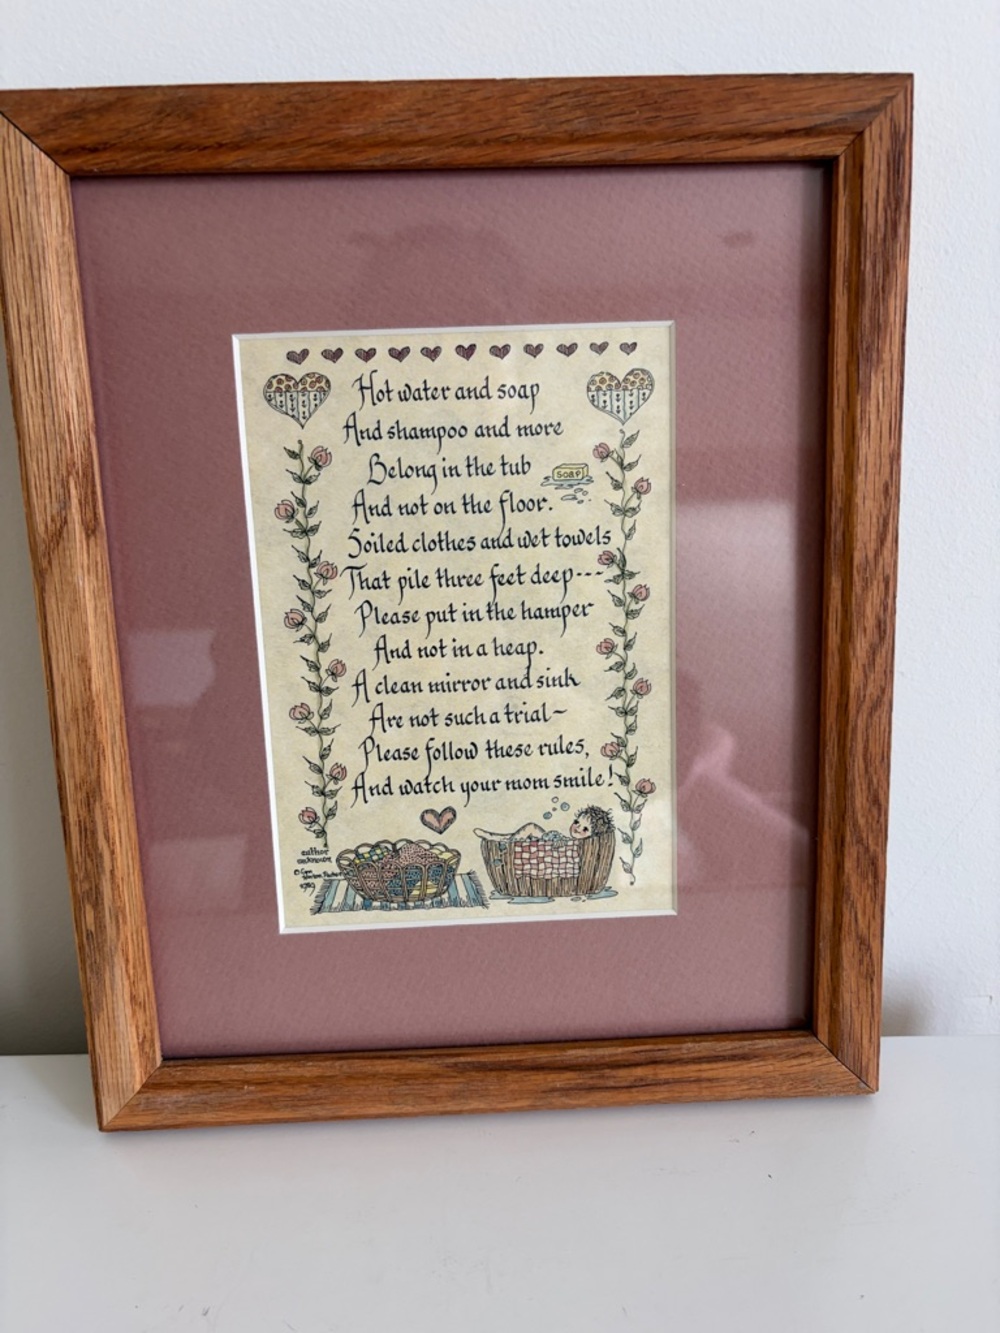 Hot water and soap
And shampoo and more
Belong in the tub
SOAP
And not on the floor.
Soiled clothes and wet towels
That pile three feet deep---
Please put in the hamper
And not in a heap.
A clean mirror and sink
Are not such a trial~
Please follow these rules,
And watch your mom smile!
author
unknown
1989